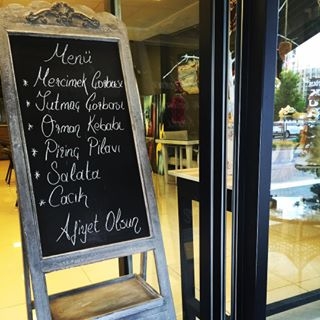 Menü
* Mercimek Çorbası
* Tutmaç Çorbası
* Orman Kebabı
* Pirinç Pilavı
* Salata
* Cacık
Afiyet Olsun